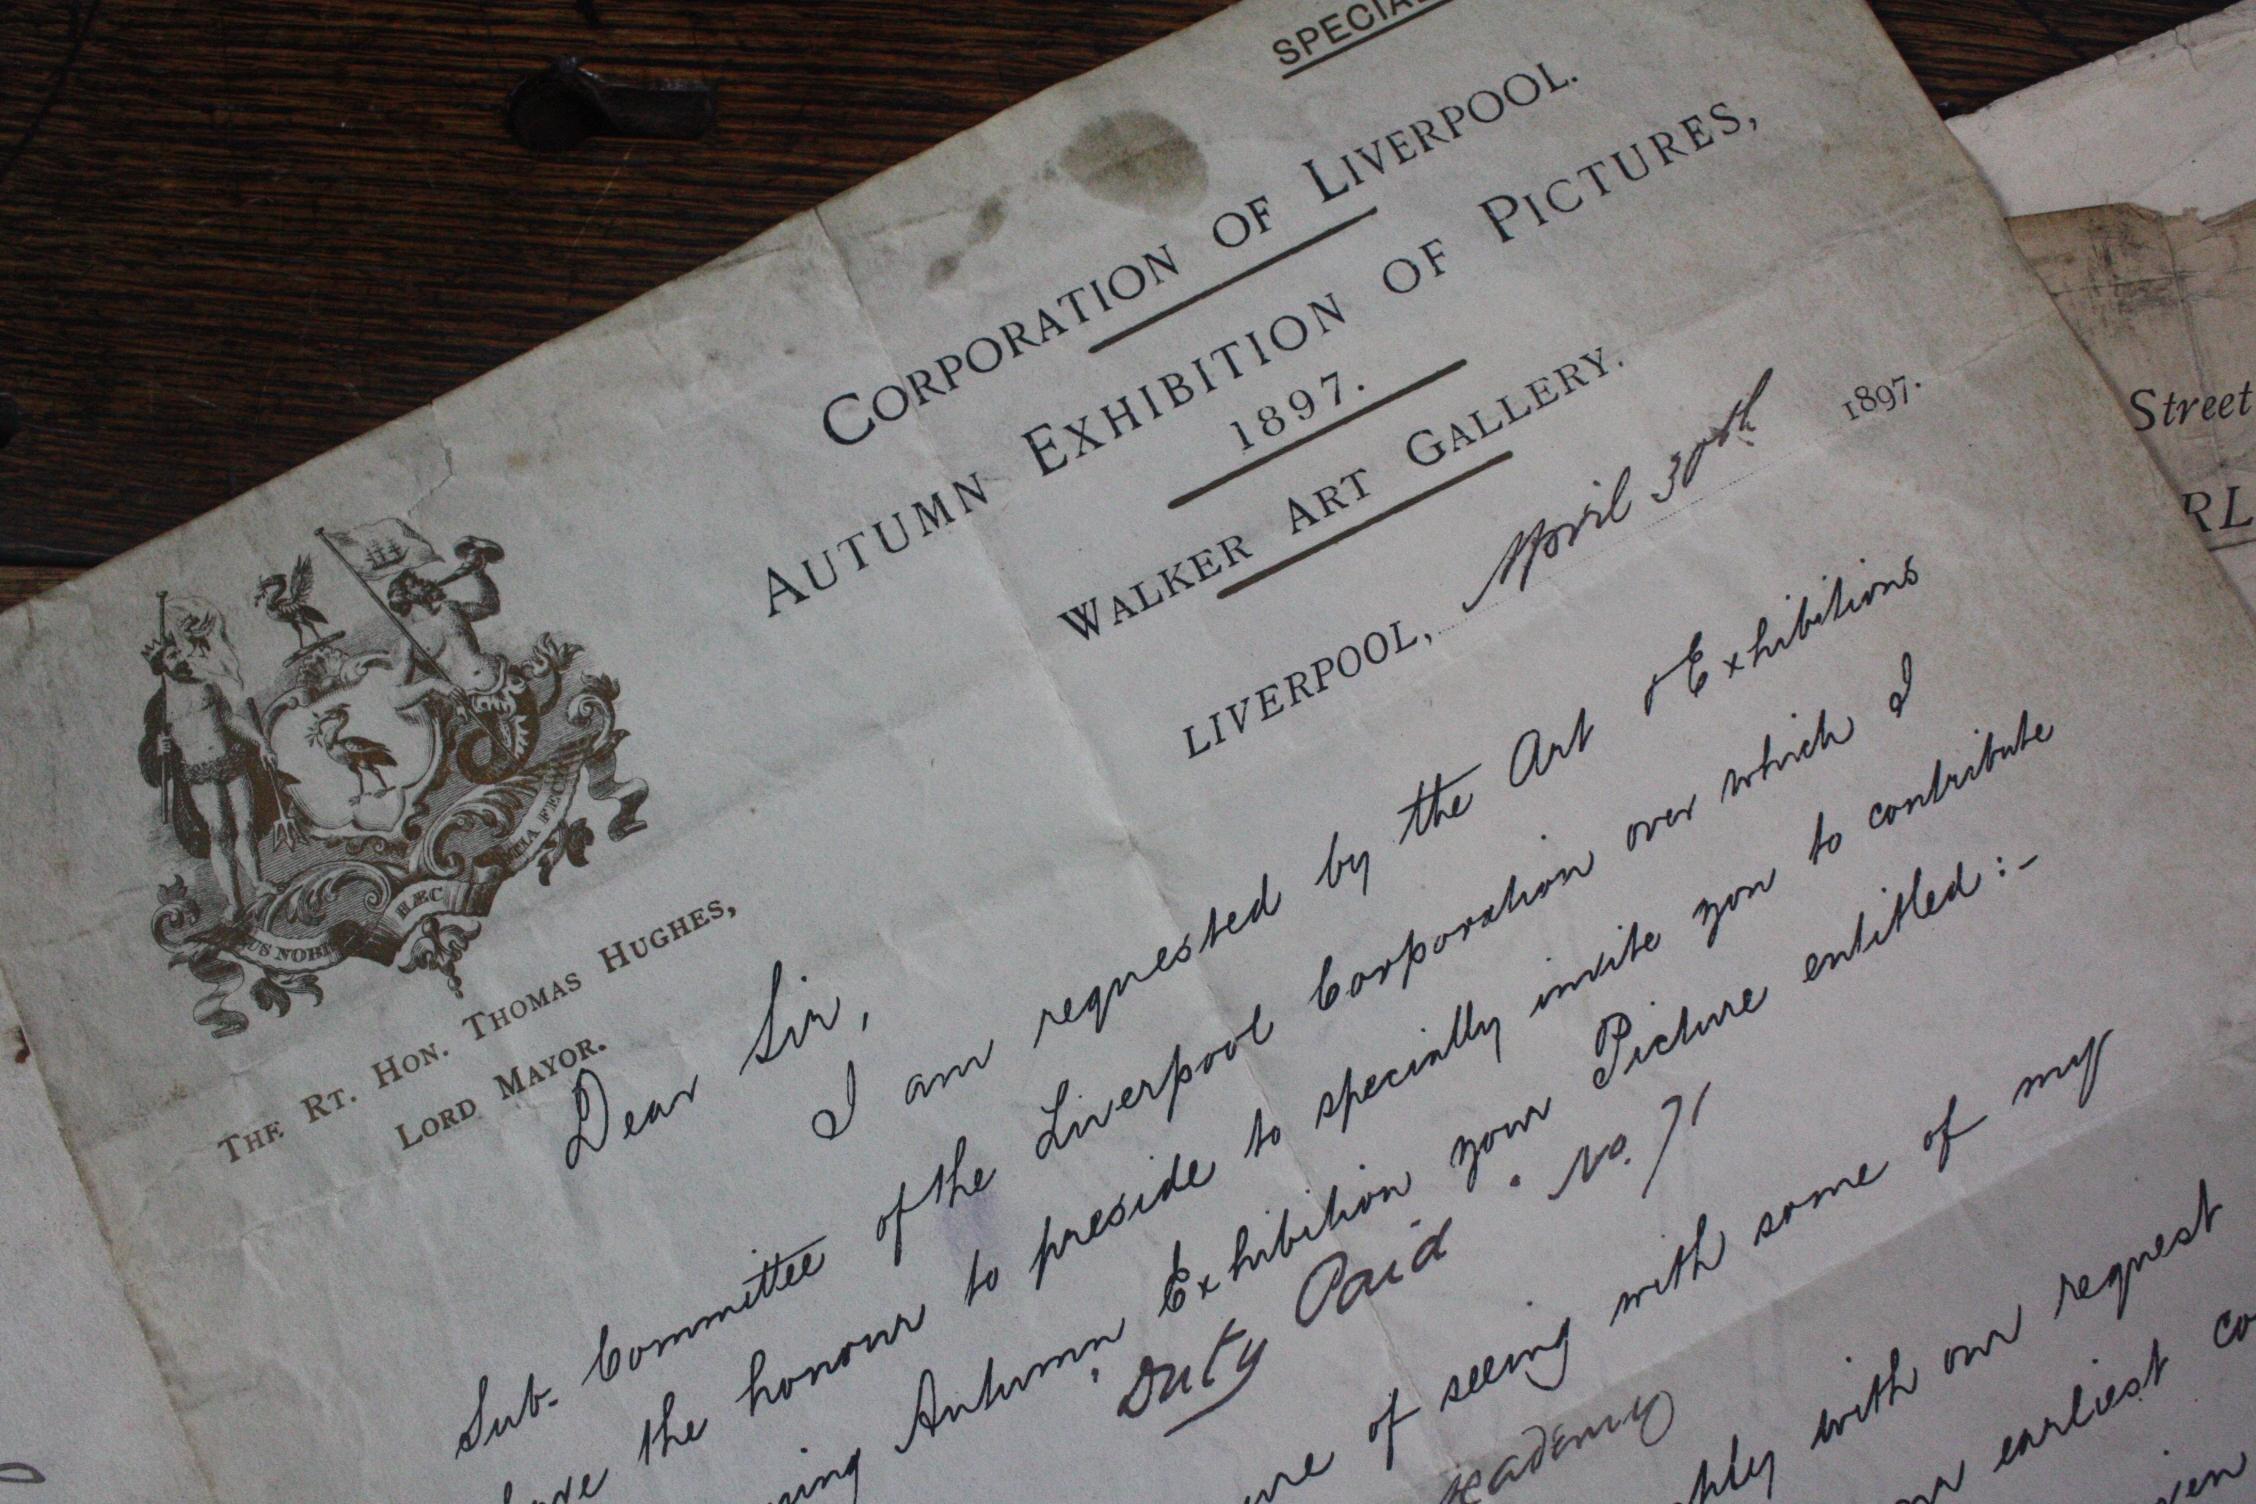 SPECIAL
CORPORATION OF LIVERPOOL.
AUTUMN EXHIBITION OF PICTURES,
1897.
WALKER ART GALLERY.
LIVERPOOL, April 30th 1897.
HÆC
THE RT. HON. THOMAS HUGHES,
LORD MAYOR.
Dear Sir,
I am requested by the Art & Exhibitions
Sub-Committee of the Liverpool Corporation over which I
the honour to preside to specially invite you to contribute
Autumn Exhibition your Picture entitled:-
"Duty Paid" No. 71
of seeing with some of my
with our request
earliest
Street
RL